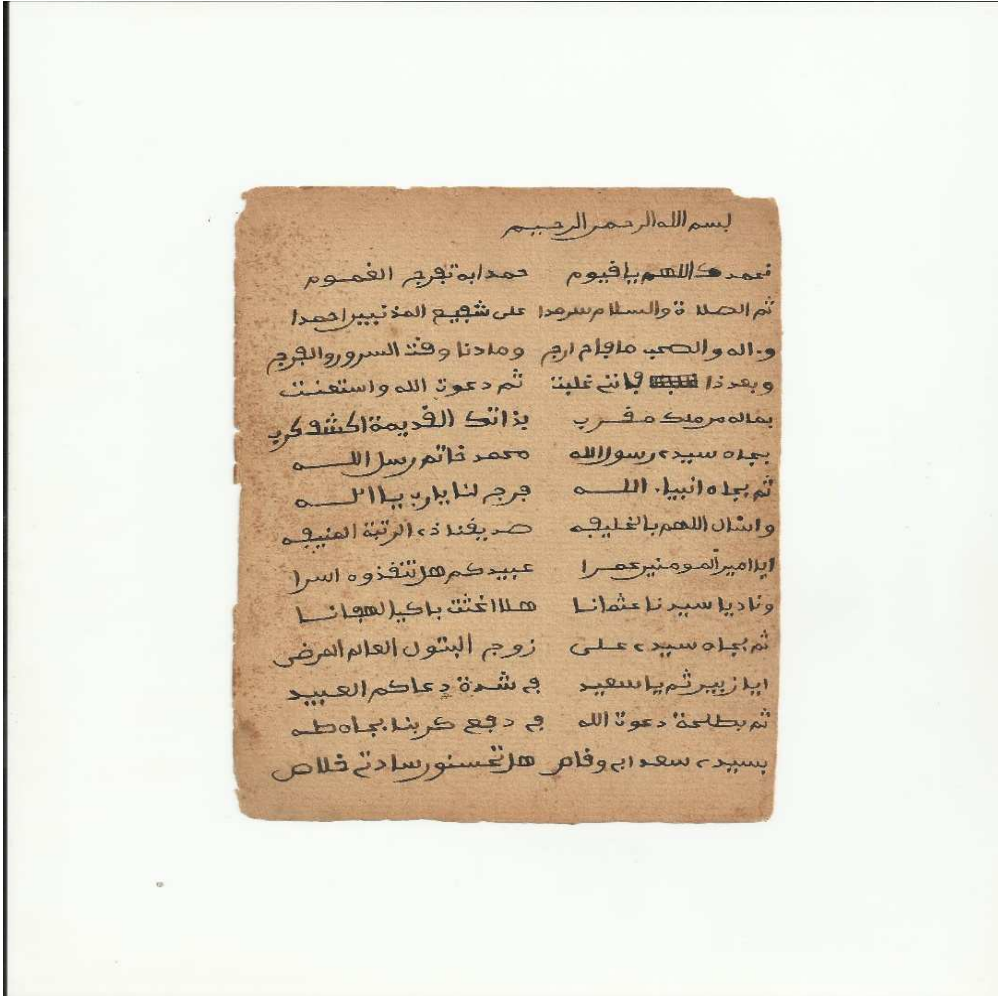 بسم الله الرحمن الرحيم
نحمدك اللهم يا قيوم حمدا به تفرج الغموم
ثم الصلاة والسلام سرمدا على شفيع المذنبين احمدا
وءاله والصحب ما فاح ارج وما دنا وقت السرور والفرج
وبعد ذا فانني غلبت ثم دعوت الله واستعنت
بماله من ملك مقرب بذاتك القديمة اكشف كرب
بجاه سيدي رسول الله محمد خاتم رسل الله
ثم بجاه انبياء الله فرج لنا يا رب يا الله
واسال اللهم بالخليفه صديقنا ذي الرتبة المنيفه
ايا امير المومنين عمرا عبيدكم هل تنقذوه اسرا
وناد يا سيدنا عثمانا هلا اغثت باكيا لهفانا
ثم بجاه سيدي علي زوج البتول العالم المرضي
ايا زبير ثم يا سعيد في شدة دعاكم العبيد
ثم بطلحة دعوت الله في دفع كربنا بجاه طه
بسيدي سعد ابي وقاص هل تحسنون سادتي خلاص